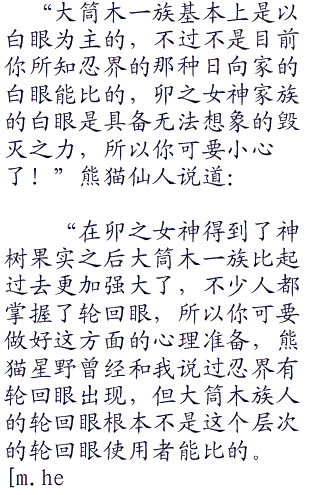 “大筒木一族基本上是以
白眼为主的，不过不是目前
你所知忍界的那种日向家的
白眼能比的，卯之女神家族
的白眼是具备无法想象的毁
灭之力，所以你可要小心
了！”熊猫仙人说道：
“在卯之女神得到了神
树果实之后大筒木一族比起
过去更加强大了，不少人都
掌握了轮回眼，所以你可要
做好这方面的心理准备，熊
猫星野曾经和我说过忍界有
轮回眼出现，但大筒木族人
的轮回眼根本不是这个层次
的轮回眼使用者能比的。
[m.he